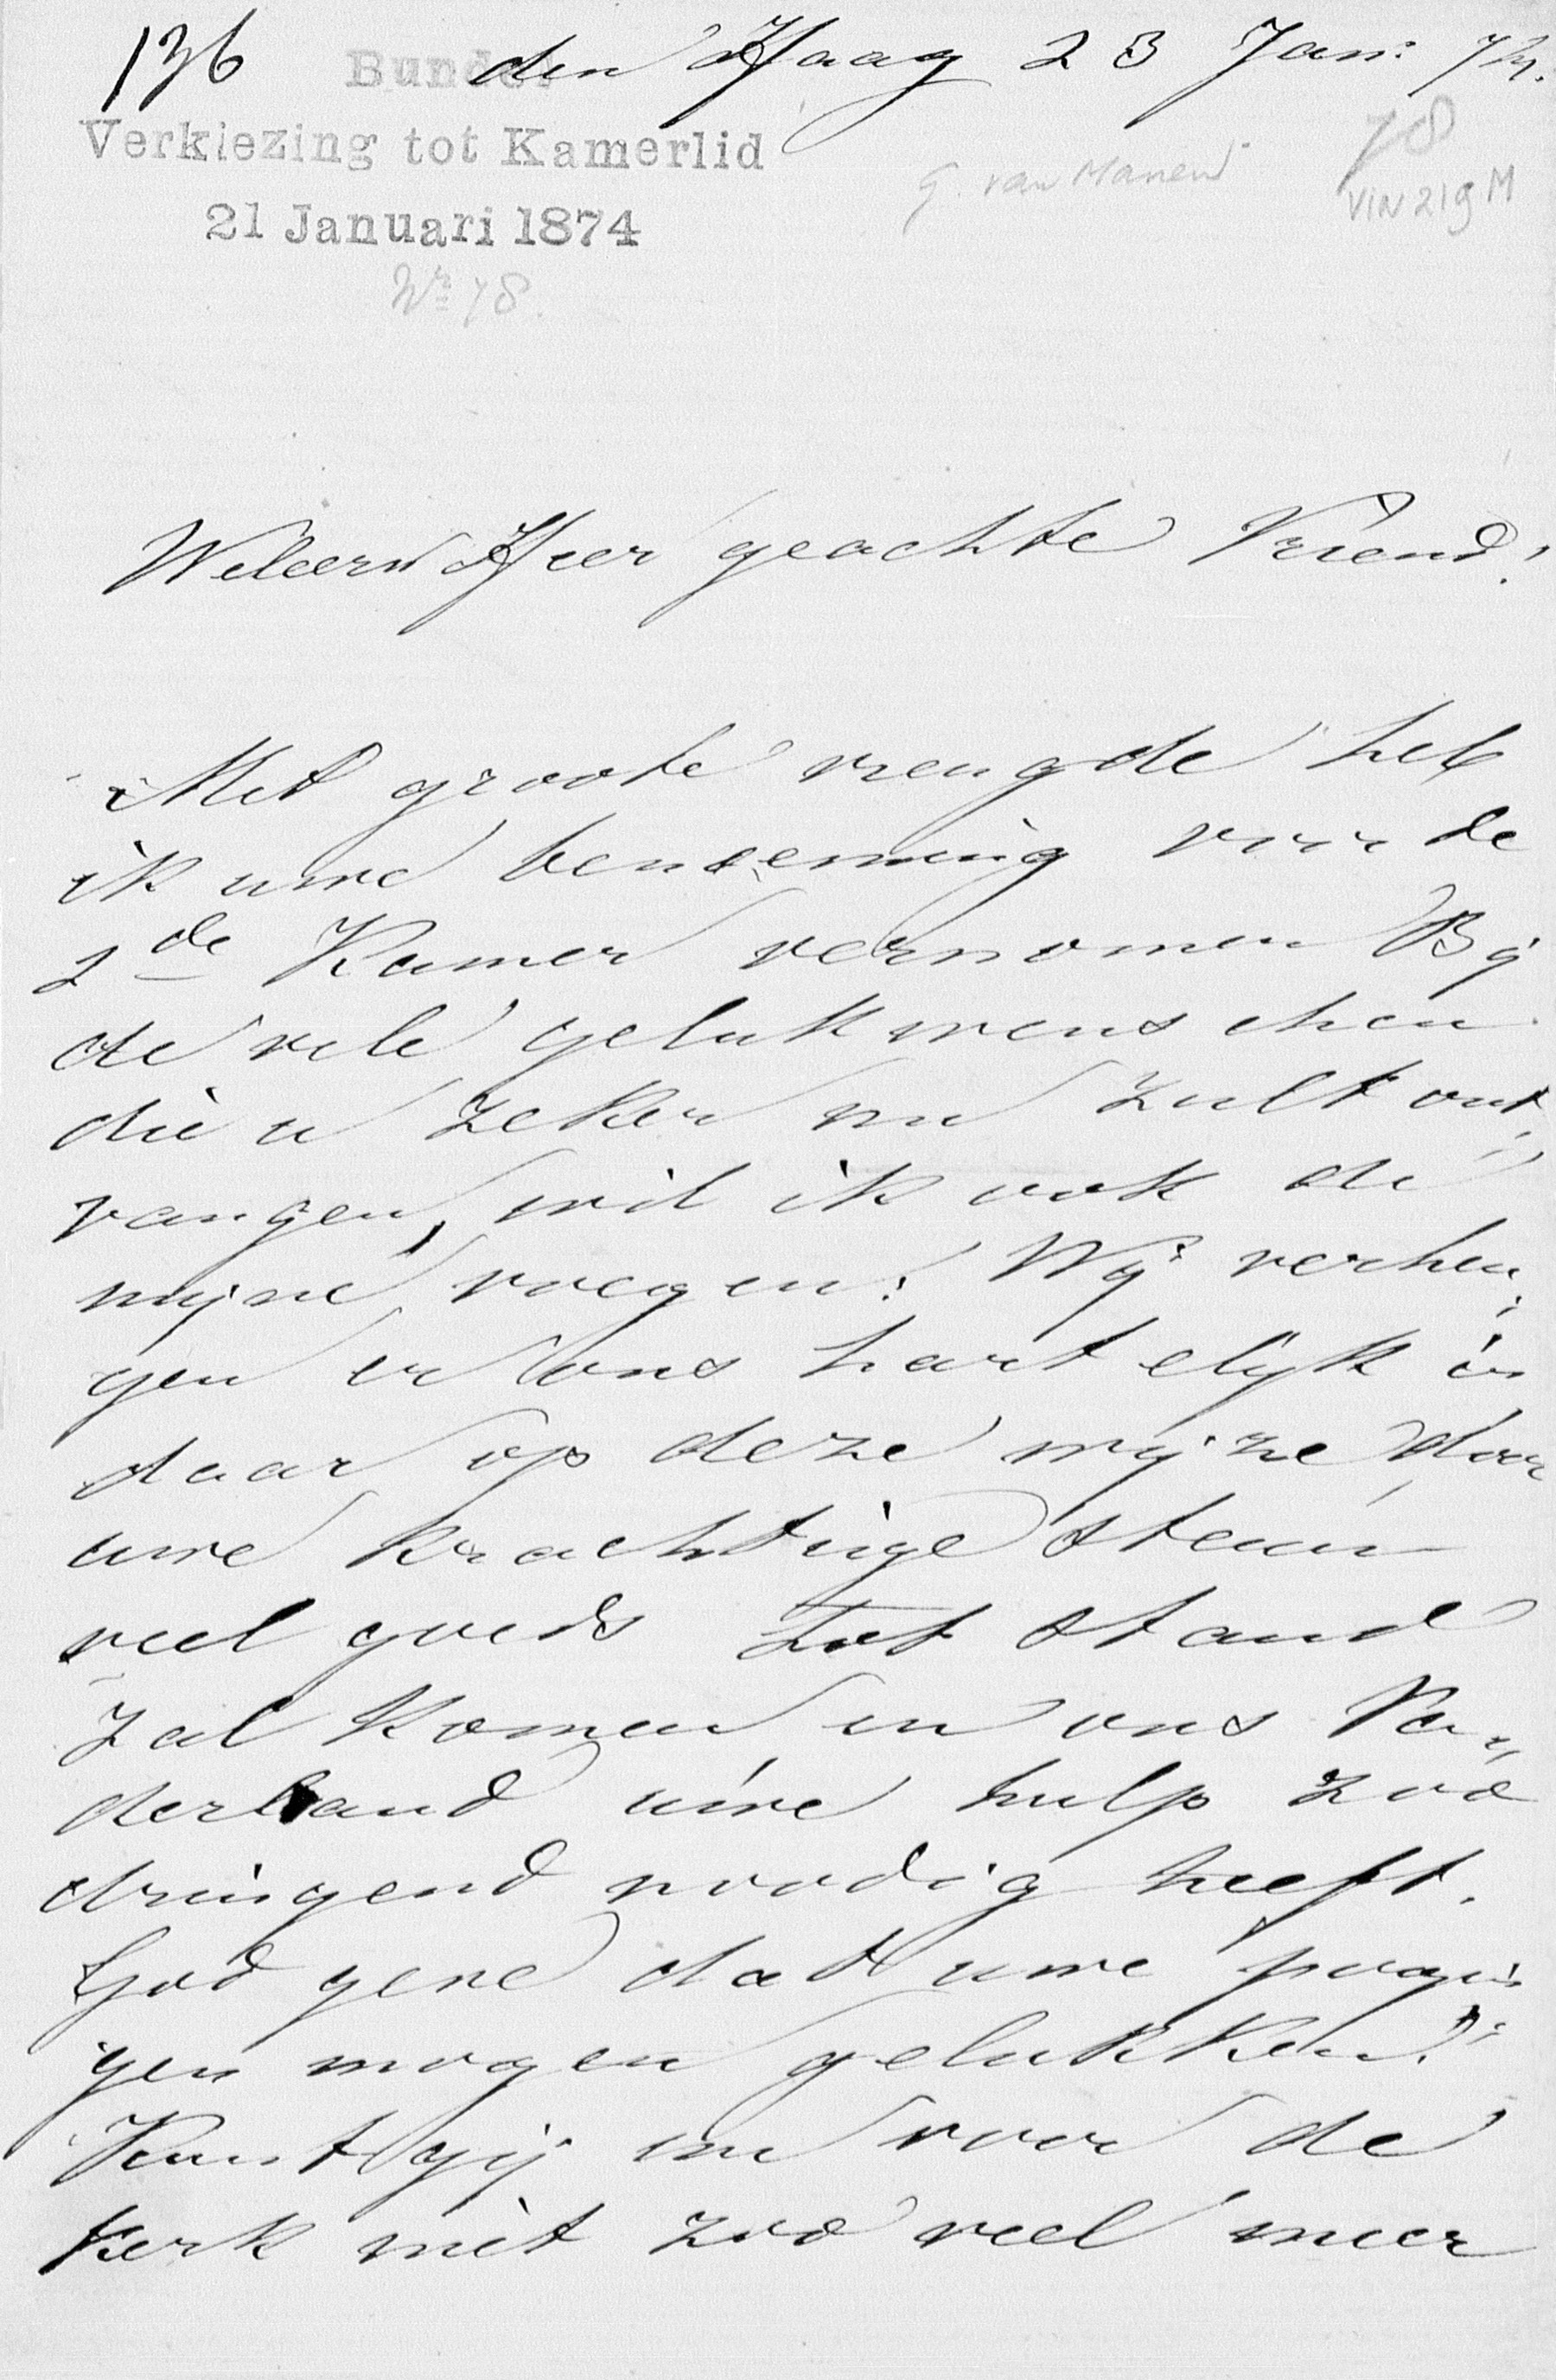 136 Bundel den Haag 23 Jan: 74.
Verkiezing tot Kamerlid
21 Januari 1874
G. van Manen
78
VIN 219 M
No 78.
Weleerw Heer geachte Vriend!
Met groote vreugde heb
ik uwe benoeming voor de
2de Kamer vernomen Bij
de vele gelukwenschen
die u zeker nu zult ont„
vangen, wil ik ook de
mijne voegen. Wij verheu„
gen er ons hartelijk in
daar op deze wijze door
uwe krachtige steun
veel goeds tot stand
zal komen en ons Va„
derland uwe hulp zoo
dringend noodig heeft.
God geve dat uwe pogin
gen mogen gelukken!
Kunt gij nu voor de
kerk niet zoo veel meer